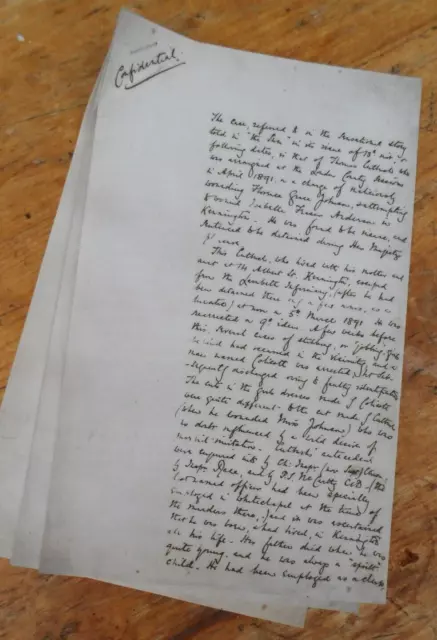 Confidential
The case referred to in the sensational story
told in "the Sun" in its issue of 13th inst, &
following dates, is that of Thomas Cutbush who
was arraigned at the London County Sessions
in April 1891, on a charge of maliciously
wounding Florence Grace Johnson, & attempting
to wound Isabelle Fraser Anderson in
Kennington. He was found to be insane, and
sentenced to be detained during Her Majesty's
pleasure.
This Cutbush, who lived with his mother and
aunt at 14 Albert St. Kennington, escaped
from the Lambeth Infirmary, (after he had
been detained there only a few hours, as a
lunatic) at noon on 5th March 1891. He was
rearrested on 9th idem. A few weeks before
this, several cases of stabbing, or "jobbing", girls
behind had occurred in the vicinity, and a
man named Colicott was arrested, but sub-
sequently discharged owing to faulty identification.
The cuts in the girls dresses made by Colicott
were quite different to the cut made by Cutbush
(when he wounded Miss Johnson) who was
no doubt influenced by a wild desire of
morbid imitation. Cutbush's antecedents
were enquired into by Ch: Inspr (now Supt.) Chis
by Inspr Race, and by P.S. McCarthy CID — (the
last named officer had been specially
employed in Whitechapel at the time of
the murders there,) and it was ascertained
that he was born, & had lived, in Kennington
all his life. His father died when he was
quite young, and he was always a "spoilt"
child. He had been employed as a clerk